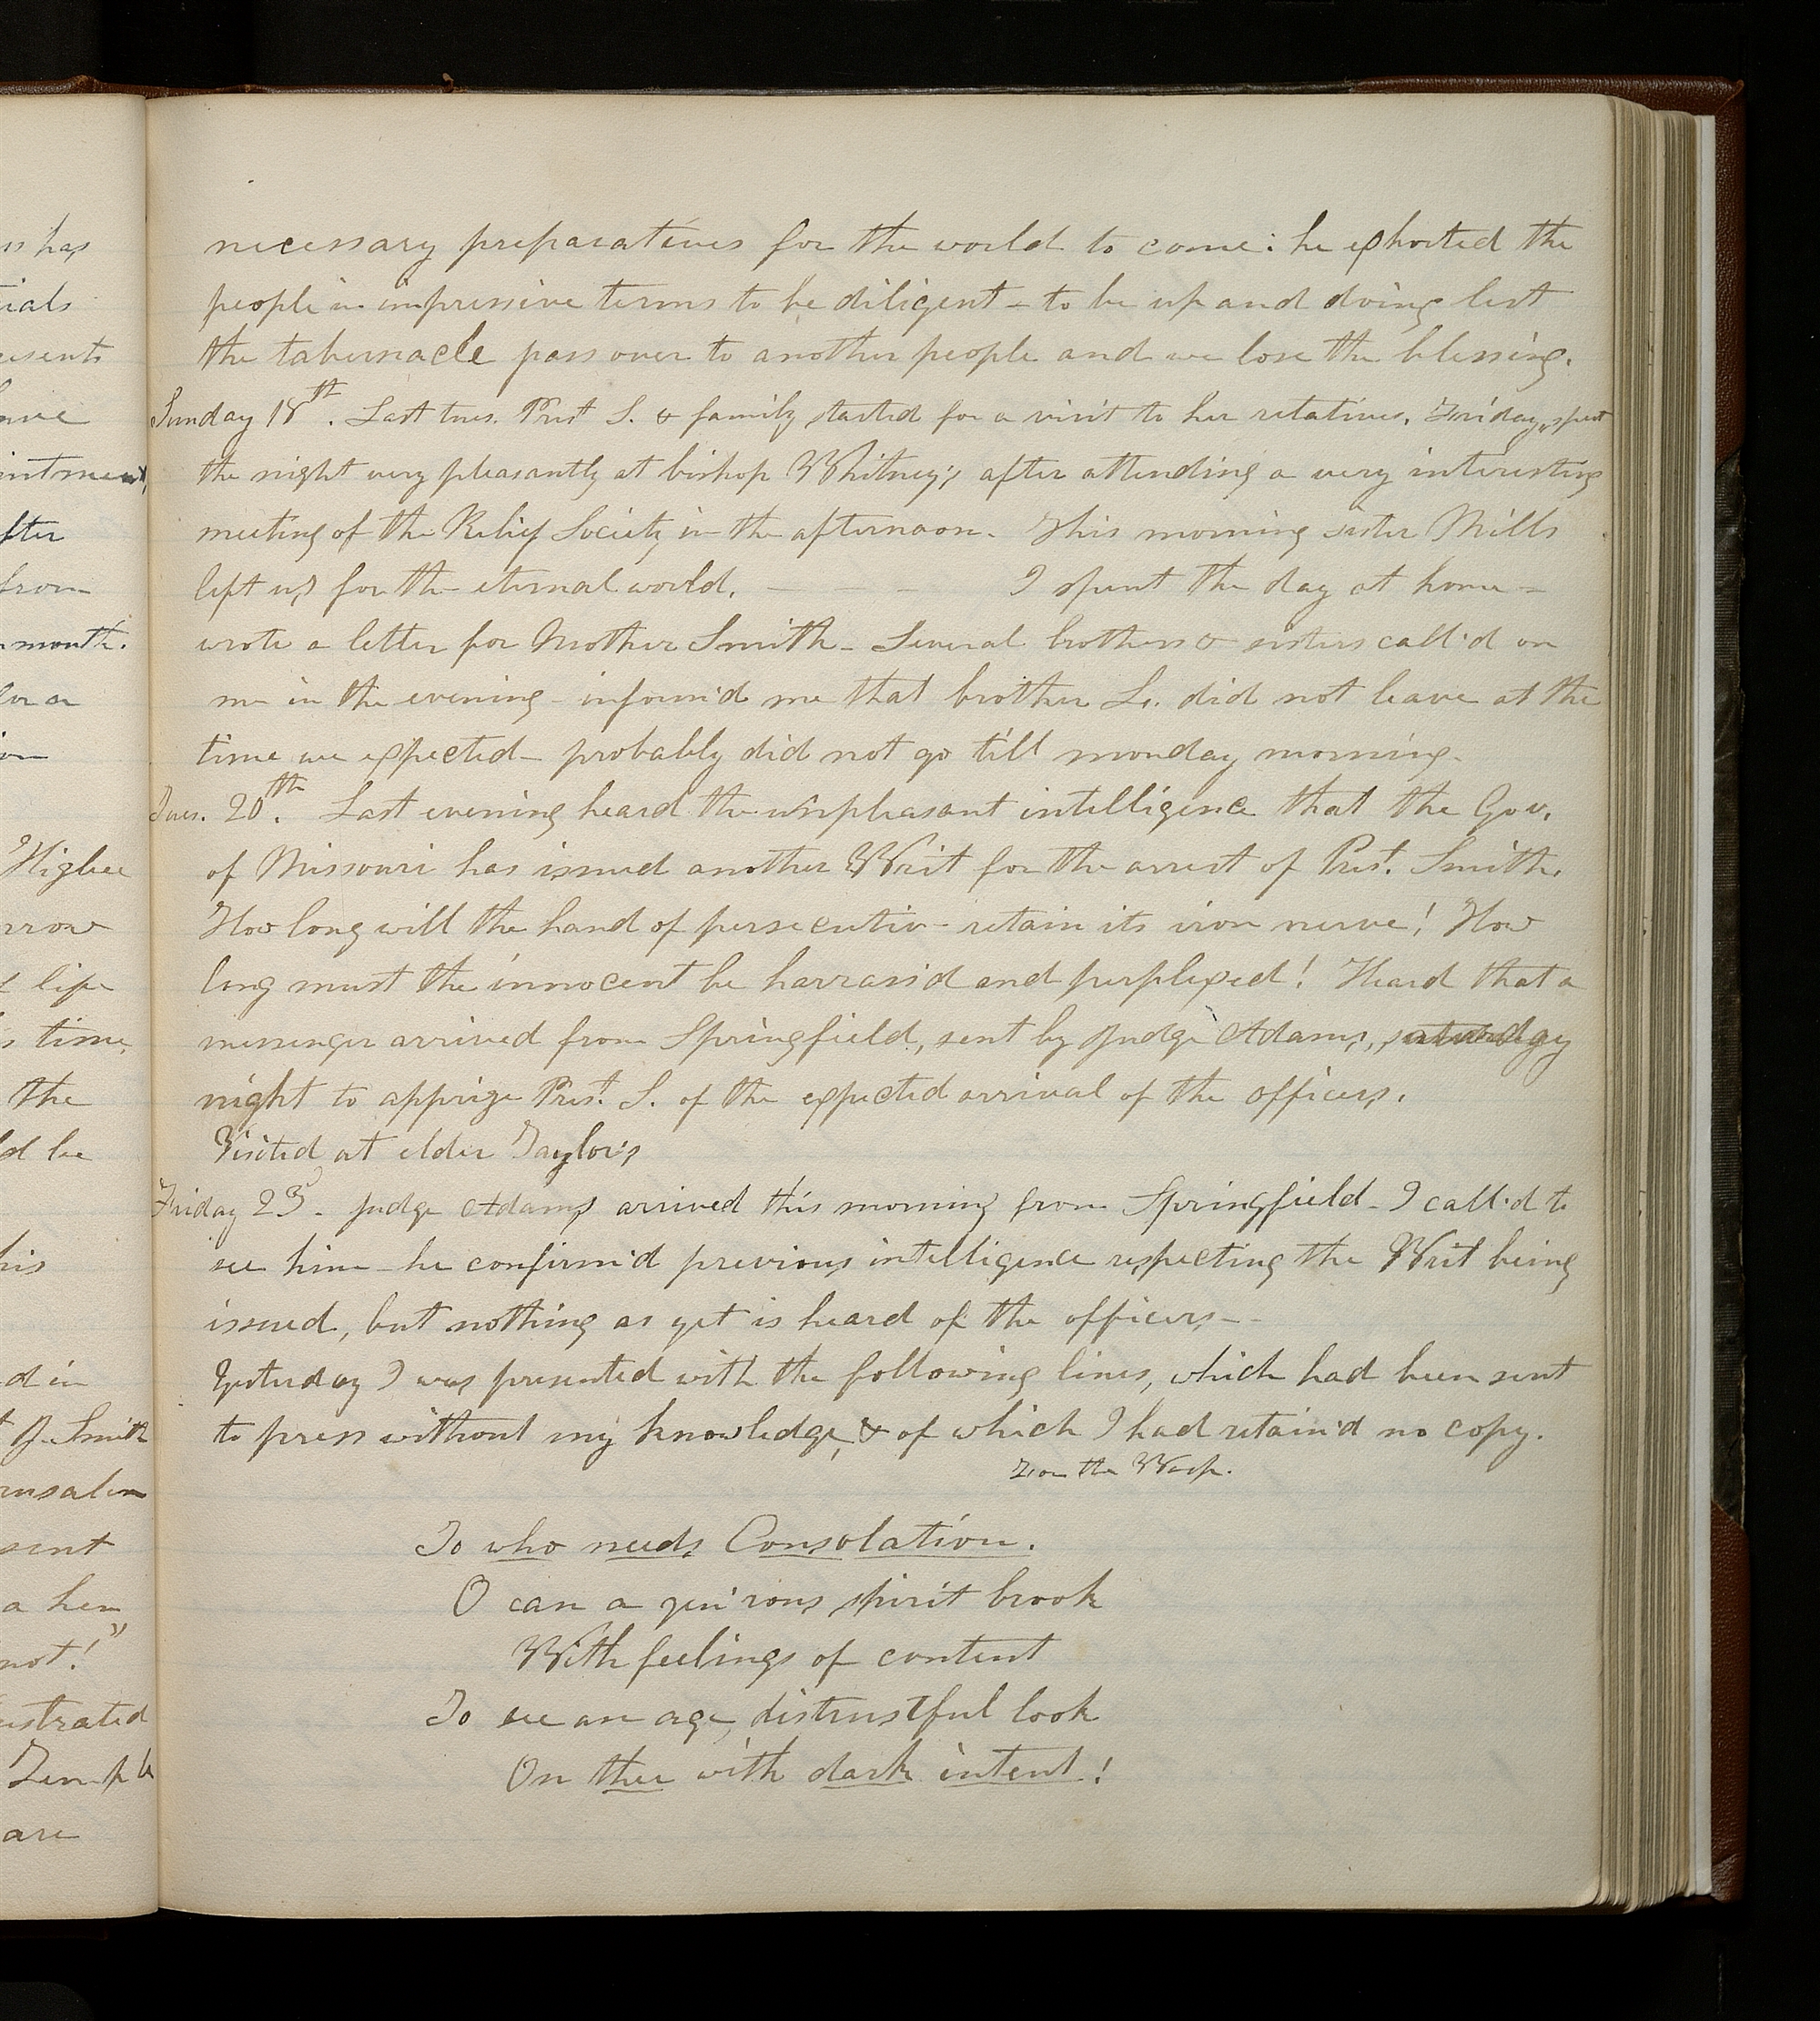 necessary preparatives for the world to come: he exhorted the
people in impressive terms to be diligent – to be up and doing lest
the tabernacle pass over to another people and we lose the blessing.
Sunday 18th. Last tues. Prest S. & family started for a visit to her relatives. Friday, spent
the night very pleasantly at bishop Whitney's after attending a very interesting
meeting of the Relief Society in the afternoon. This morning sister Mills
left us for the eternal world. – – – I spent the day at home –
wrote a letter for Mother Smith – Several brothers & sisters call'd on
me in the evening – inform'd me that brother L. did not leave at the
time we expected – probably did not go till monday morning.
Tues. 20th. Last evening heard the unpleasant intelligence that the Gov.
of Missouri has issued another Writ for the arrest of Prest. Smith.
How long will the hand of persecution retain its iron nerve! How
long must the innocent be harrass'd and perplexed! Heard that a
messenger arrived from Springfield, sent by Judge Adams, saturday
night to apprize Prest. S. of the expected arrival of the officers.
Visited at elder Taylor's
Friday 23d. Judge Adams arrived this morning from Springfield – I call'd to
see him – he confirm'd previous intelligence respecting the Writ being
issued, but nothing as yet is heard of the officers –
Yesterday I was presented with the following lines, which had been sent
to press without my knowledge, & of which I had retain'd no copy.
From the Wasp.
To who needs Consolation.
O can a gen'rous spirit brook
With feelings of content
To see an age, distrustful look
On thee with dark intent!
is has
ials
esents
intment,
after
from
month.
for a
Higbee
rrow
life
time,
the
ld be
his
d in
J. Smith
rusalem
sent
a hen
not!"
ustrated
Temple
are